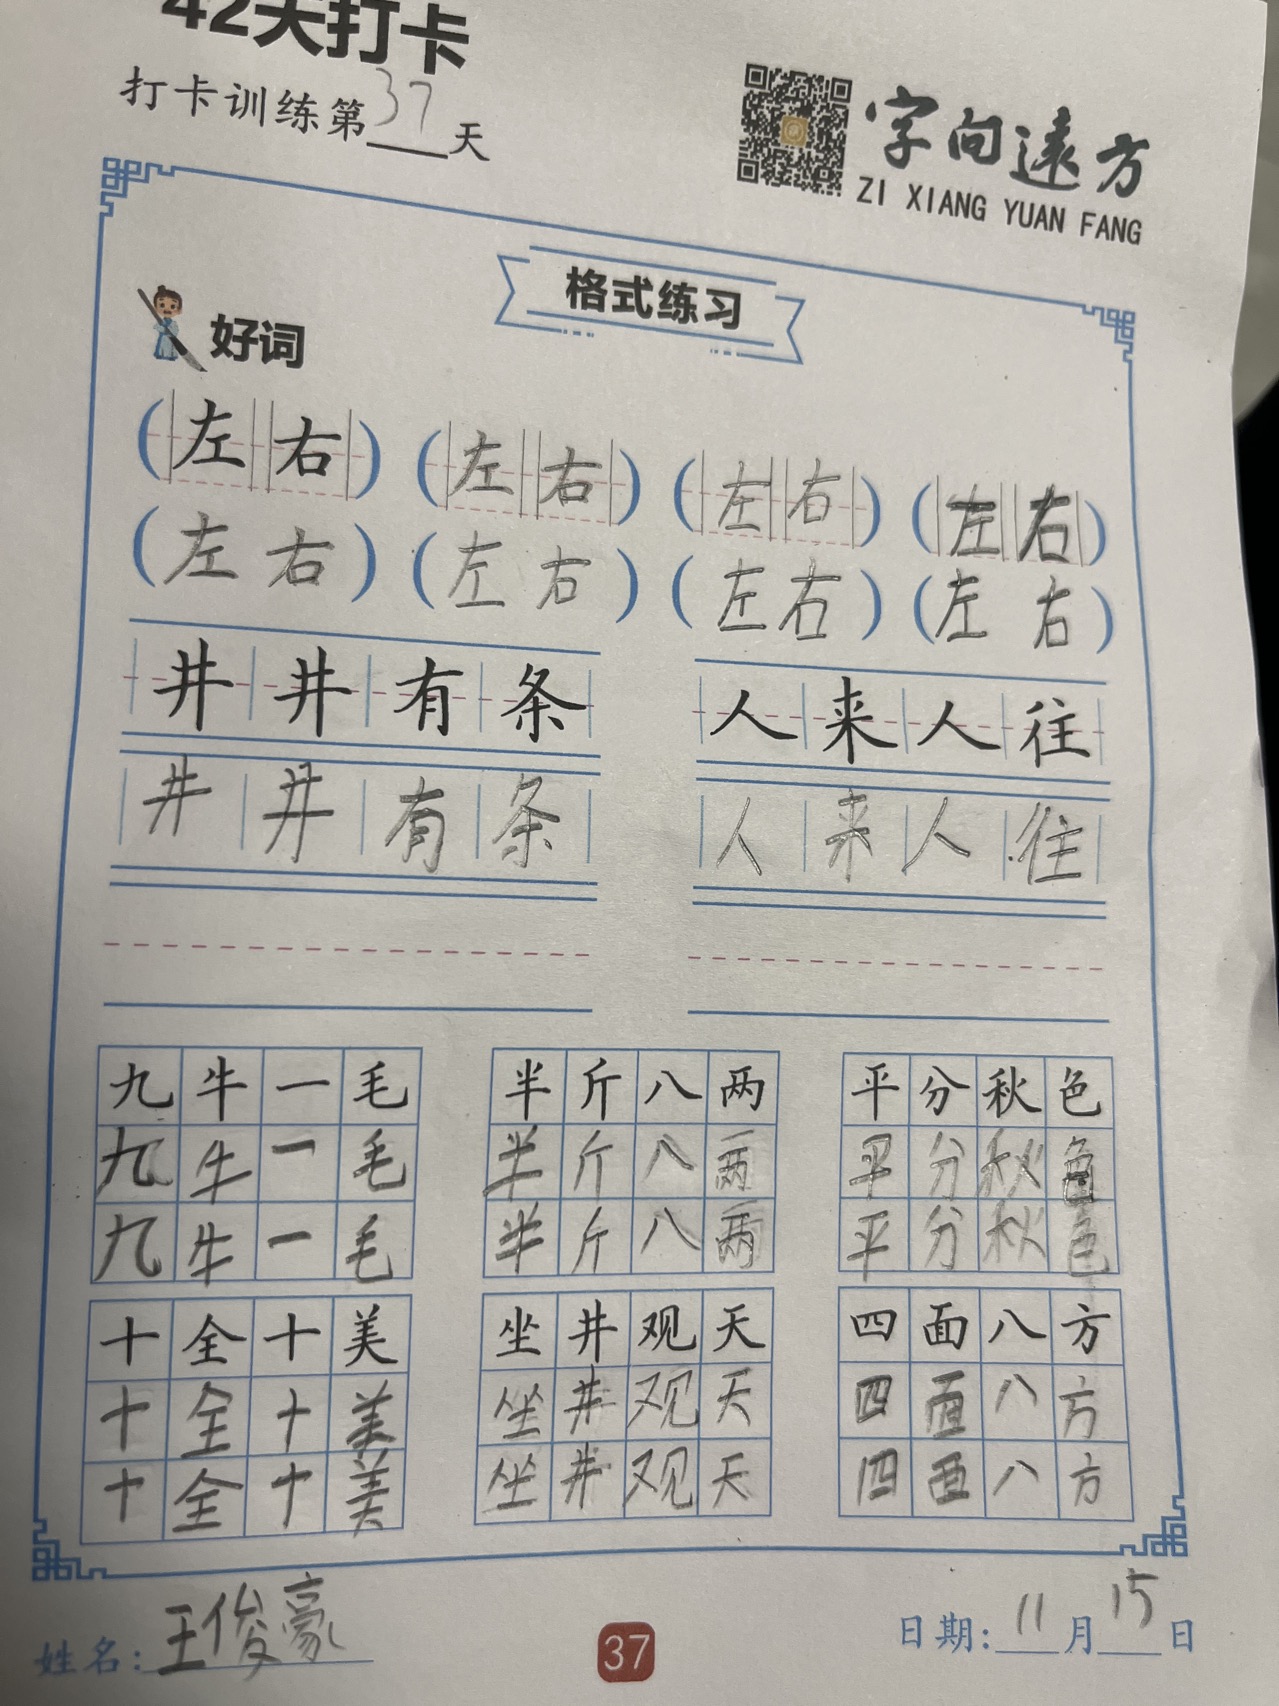 42天打卡
打卡训练第37天
字向遠方
ZI XIANG YUAN FANG
格式练习
好词
(左右) (左右) (左右) (左右)
(左右) (左右) (左右) (左右)
井井有条 人来人往
井井有条 人来人往
九牛一毛 半斤八两 平分秋色
九牛一毛 半斤八两 平分秋色
九牛一毛 半斤八两 平分秋色
十全十美 坐井观天 四面八方
十全十美 坐井观天 四面八方
十全十美 坐井观天 四面八方
姓名:王俊豪 37 日期:11月15日